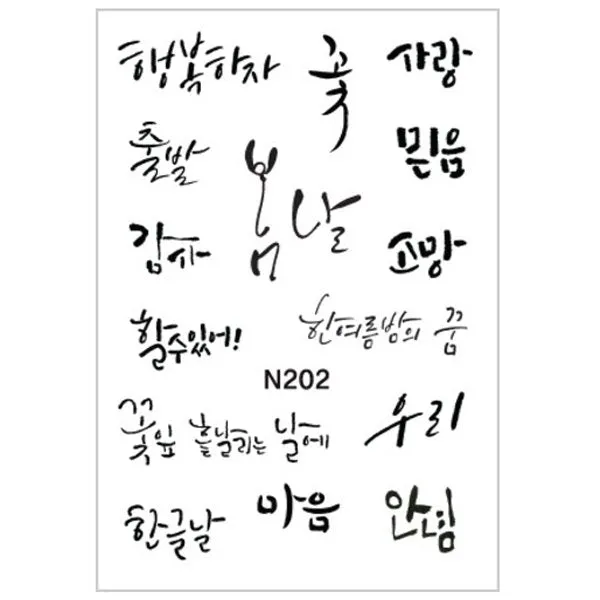 행복하자
꽃
사랑
출발
봄날
믿음
감사
소망
할수있어!
한여름밤의 꿈
N202
꽃잎 흩날리는 날에
우리
한글날
마음
안녕